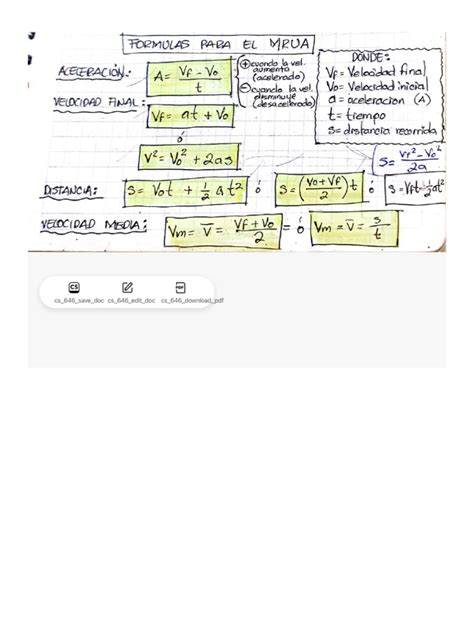 FORMULAS PARA EL MRUA
ACELERACIÓN:
A = Vf - Vo / t
⊕ cuando la vel. aumenta (acelerado)
⊖ cuando la vel. disminuye (desacelerado)
DONDE:
Vf = Velocidad final
Vo = Velocidad inicial
a = aceleracion (A)
t = tiempo
S = distancia recorrida
VELOCIDAD FINAL:
Vf = at + Vo
ó
V² = Vo² + 2as
S = Vf² - Vo² / 2a
DISTANCIA:
S = Vot + 1/2 at²
ó
S = (Vo + Vf / 2) t
ó
S = Vft - 1/2 at²
VELOCIDAD MEDIA:
Vm = V̅ = Vf + Vo / 2
= ó
Vm = V̅ = s / t
CS
PDF
cs_646_save_doc cs_646_edit_doc cs_646_download_pdf